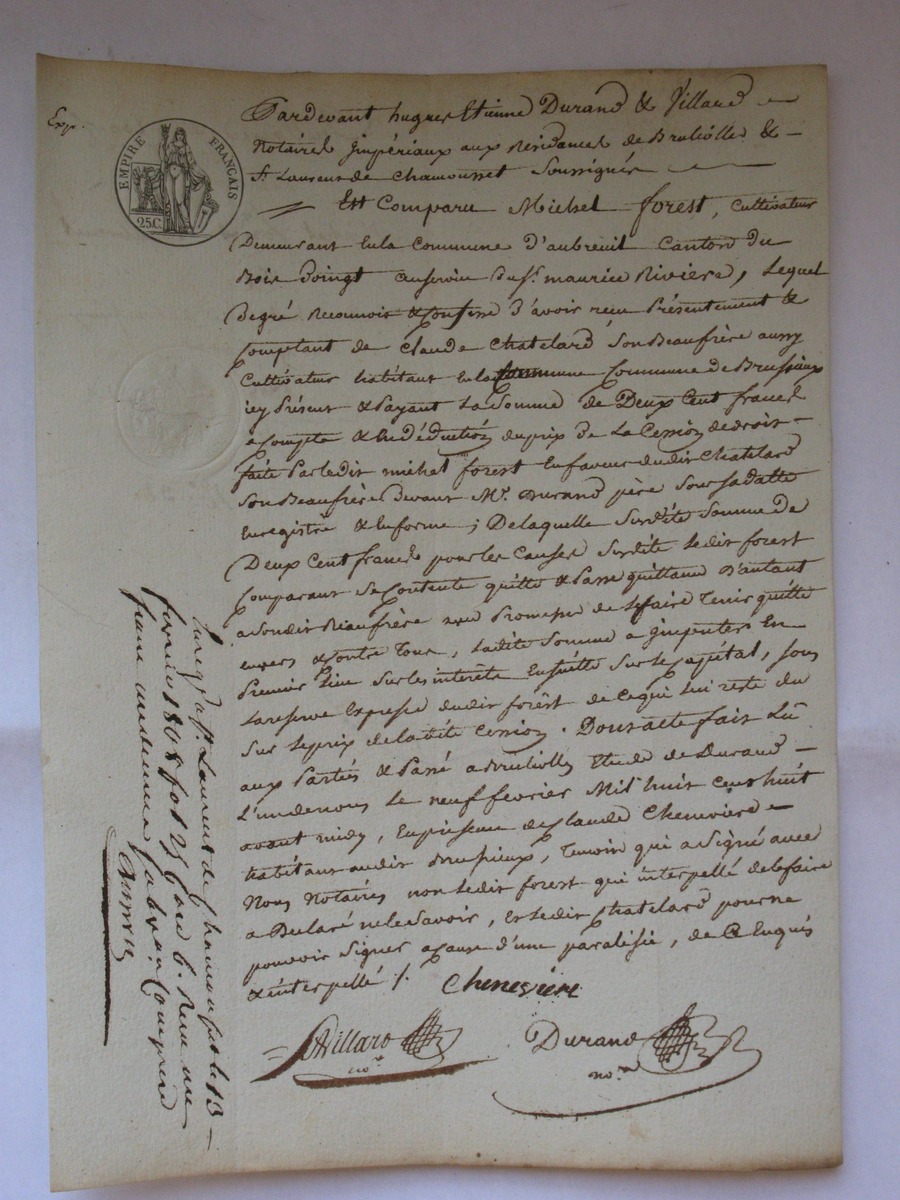 Exp.
EMPIRE FRANÇAIS
25C.
Pardevant hugues Etienne Durand & Villard
Notaires Jmpériaux aux Résidances de Brulliolles &
St Laurent de Chamousset Soussignés
Est Comparu Michel forest, Cultivateur
Demeurant En la Commune d'aubreuil Canton du
Bois Doingt St maurice Riviere, Lequel
de gré Reconnoit & Confesse d'avoir recu Présentement &
Comptant de Claude Chatelard Son Beaufrère aussy
Cultivateur habitant En la Commune de Brussieux
icy Présent & Payant La Somme de Deux Cent francs
acompte & En déduction du prix de La Cession de droit
faite Par ledit michel forest En faveur dudit Chatelard
Son Beaufrère Devant Me. Durand père Sous Sa datte
Enregistré & En forme ; De laquelle Susdite Somme de
Deux Cent francs pour les Causes Susdite Ledit forest
Comparant Se Contente quitte & Passe quittance D'autant
a Son dit Beaufrère avec Promesse de le faire Tenir quitte
envers & Contre Tous, Ladite Somme a Jmputer En
Premier Lieu Sur les interêts Ensuitte Sur le Capital, sous
La reserve Expresse dudit forêst de Ce qui Lui reste du
Sur le prix de la dite Cession. Dont acte fait Lu
aux Parties & Passé a Brulliolles Etude de Durand
L'un de nous Le neuf février Mil huit Cent huit
avant midy, En présence de Claude Chenevière
habitant audit Brussieux, Temoin qui a Signé avec
Nous Notaires non Ledit forest qui interpellé de le faire
a Déclaré ne le Savoir, Et Ledit Chatelard pour ne
pouvoir Signer a Cause d'une paralisie, de Ce Enquis
& interpellé /.
Chenevière
Villard
no.re
Durand
no.re
Enreg. a St. Laurent de Chamousset le 13
fevrier 1808 fo. 125 Case 6. Recu un
franc